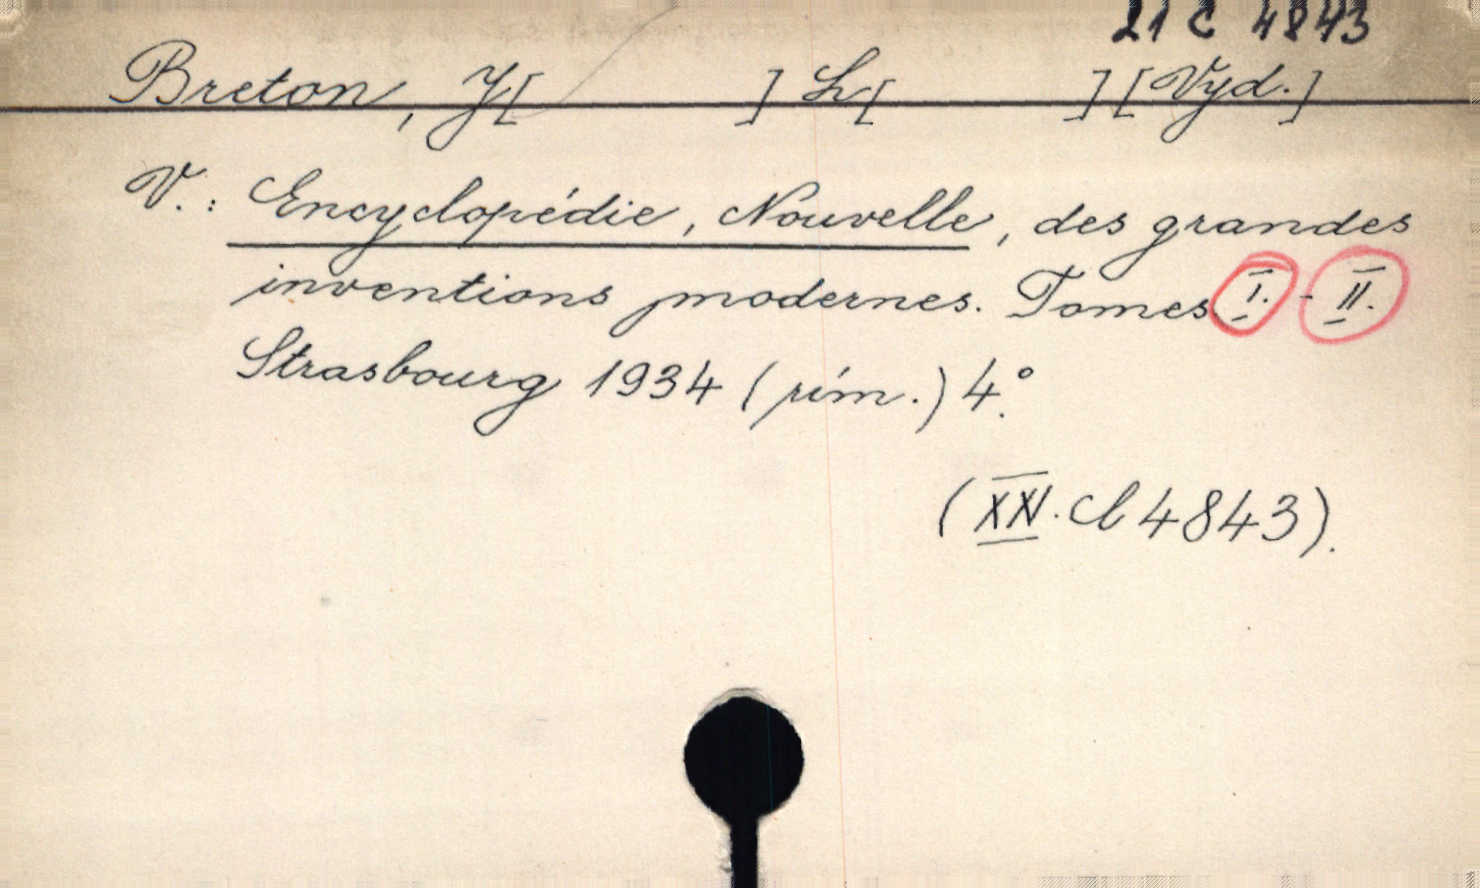 21 C 4843
Breton, J[ ] L[ ] [Vyd.]
V.: Encyclopédie, Nouvelle, des grandes
inventions modernes. Tomes I. - II.
Strasbourg 1934 (rím.) 4°.
4843).